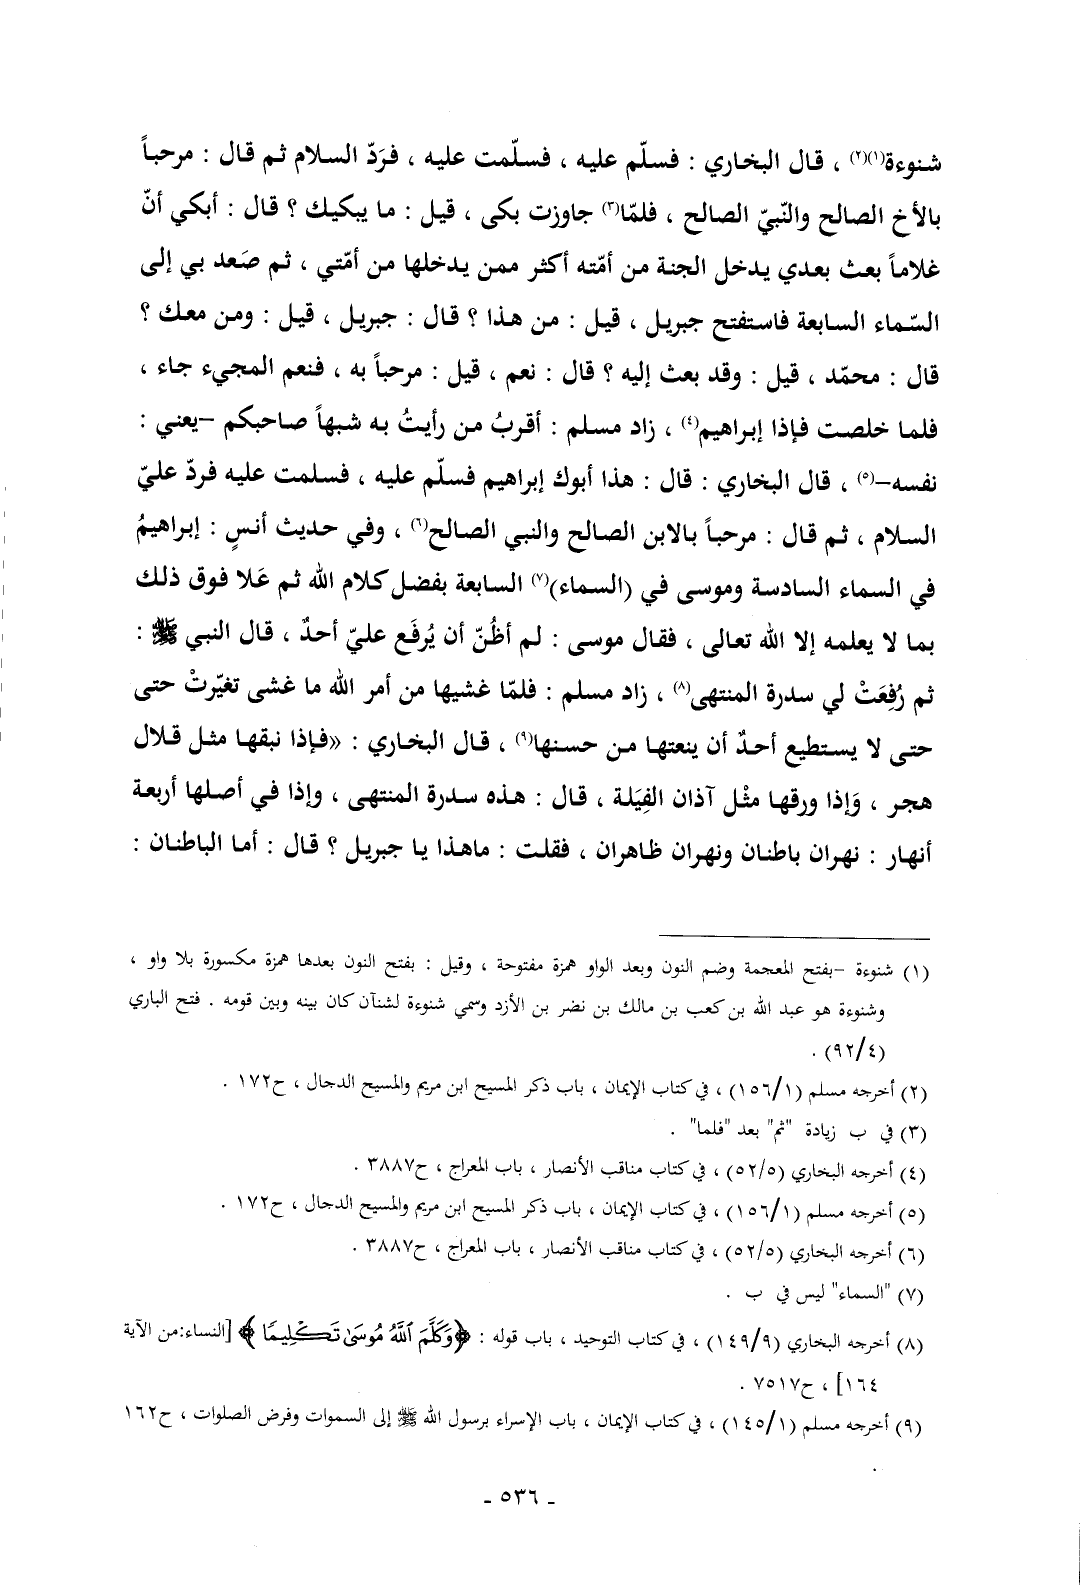 شنوءة(١)(٢) ، قال البخاري : فسلّم عليه ، فسلّمت عليه ، فرَدّ السلام ثم قال : مرحباً
بالأخ الصالح والنّبيّ الصالح ، فلمّا(٣) جاوزت بكى ، قيل : ما يبكيك ؟ قال : أبكي أنّ
غلاماً بعث بعدي يدخل الجنة من أمّته أكثر ممن يدخلها من أمّتي ، ثم صَعد بي إلى
السّماء السابعة فاستفتح جبريل ، قيل : من هذا ؟ قال : جبريل ، قيل : ومن معك ؟
قال : محمّد ، قيل : وقد بعث إليه ؟ قال : نعم ، قيل : مرحباً به ، فنعم المجيء جاء ،
فلما خلصت فإذا إبراهيم(٤) ، زاد مسلم : أقربُ من رأيتُ به شبهاً صاحبكم -يعني :
نفسه-(٥) ، قال البخاري : قال : هذا أبوك إبراهيم فسلّم عليه ، فسلمت عليه فردّ عليّ
السلام ، ثم قال : مرحباً بالابن الصالح والنبي الصالح(٦) ، وفي حديث أنسٍ : إبراهيمُ
في السماء السادسة وموسى في (السماء)(٧) السابعة بفضل كلام الله ثم عَلا فوق ذلك
بما لا يعلمه إلا الله تعالى ، فقال موسى : لم أظُنّ أن يُرفَع عليّ أحدٌ ، قال النبي ﷺ :
ثم رُفِعَتْ لي سدرة المنتهى(٨) ، زاد مسلم : فلمّا غشيها من أمر الله ما غشى تغيّرتْ حتى
حتى لا يستطيع أحدٌ أن ينعتها من حسنها(٩) ، قال البخاري : «فإذا نبقها مثل قلال
هجر ، وَإذا ورقها مثْل آذان الفِيَلة ، قال : هذه سدرة المنتهى ، وإذا في أصلها أربعة
أنهار : نهران باطنان ونهران ظاهران ، فقلت : ماهذا يا جبريل ؟ قال : أما الباطنان :
(١) شنوءة -بفتح المعجمة وضم النون وبعد الواو همزة مفتوحة ، وقيل : بفتح النون بعدها همزة مكسورة بلا واو ،
وشنوءة هو عبد الله بن كعب بن مالك بن نضر بن الأزد وسمي شنوءة لشنآن كان بينه وبين قومه . فتح الباري
(٩٢/٤) .
(٢) أخرجه مسلم (١٥٦/١) ، في كتاب الإيمان ، باب ذكر المسيح ابن مريم والمسيح الدجال ، ح١٧٢ .
(٣) في ب زيادة "ثم" بعد "فلما" .
(٤) أخرجه البخاري (٥٢/٥) ، في كتاب مناقب الأنصار ، باب المعراج ، ح٣٨٨٧ .
(٥) أخرجه مسلم (١٥٦/١) ، في كتاب الإيمان ، باب ذكر المسيح ابن مريم والمسيح الدجال ، ح١٧٢ .
(٦) أخرجه البخاري (٥٢/٥) ، في كتاب مناقب الأنصار ، باب المعراج ، ح٣٨٨٧ .
(٧) "السماء" ليس في ب .
(٨) أخرجه البخاري (١٤٩/٩) ، في كتاب التوحيد ، باب قوله : ﴿وَكَلَّمَ ٱللَّهُ مُوسَىٰ تَكْلِيمًا﴾ [النساء:من الآية
١٦٤] ، ح٧٥١٧ .
(٩) أخرجه مسلم (١٤٥/١) ، في كتاب الإيمان ، باب الإسراء برسول الله ﷺ إلى السموات وفرض الصلوات ، ح١٦٢
.
- ٥٣٦ -